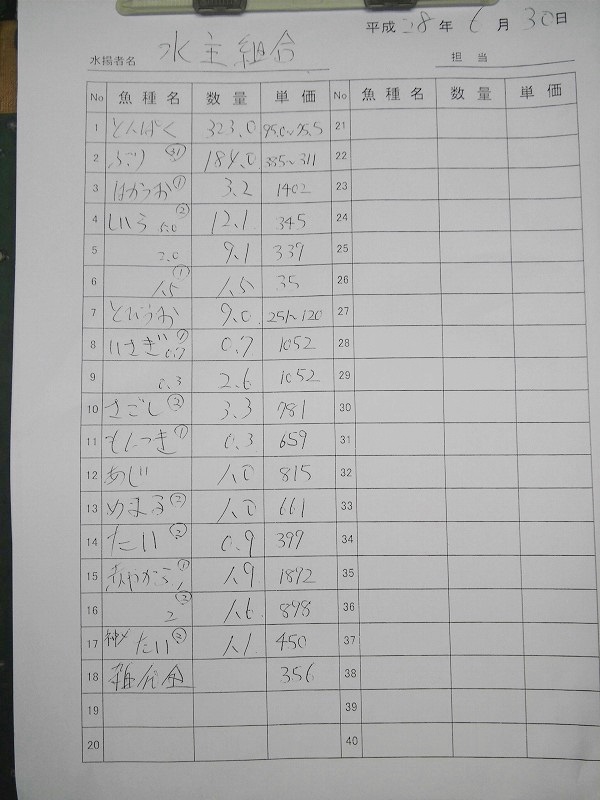 平成 28 年 6 月 30 日
水揚者名 水主組合 担当
No 魚種名 数量 単価 No 魚種名 数量 単価
1 とんぼく 323.0 95.0~75.5 21
2 ぶり 31 184.0 335~311 22
3 はかつお ① 3.2 1402 23
4 しいら 6.0 ② 12.1 345 24
5 3.0 9.1 339 25
6 1.5 ① 1.5 35 26
7 とびうお 9.0 251~120 27
8 いさぎ 0.7 ① 0.7 1052 28
9 0.3 2.6 1052 29
10 さごし ③ 3.3 781 30
11 もんつき ① 0.3 659 31
12 あじ 1.0 815 32
13 めまる ② 1.0 661 33
14 たい ② 0.9 399 34
15 赤やがら 1 ① 1.9 1892 35
16 2 ② 1.6 898 36
17 神〆 たい ② 1.1 450 37
18 雑代金 356 38
19 39
20 40